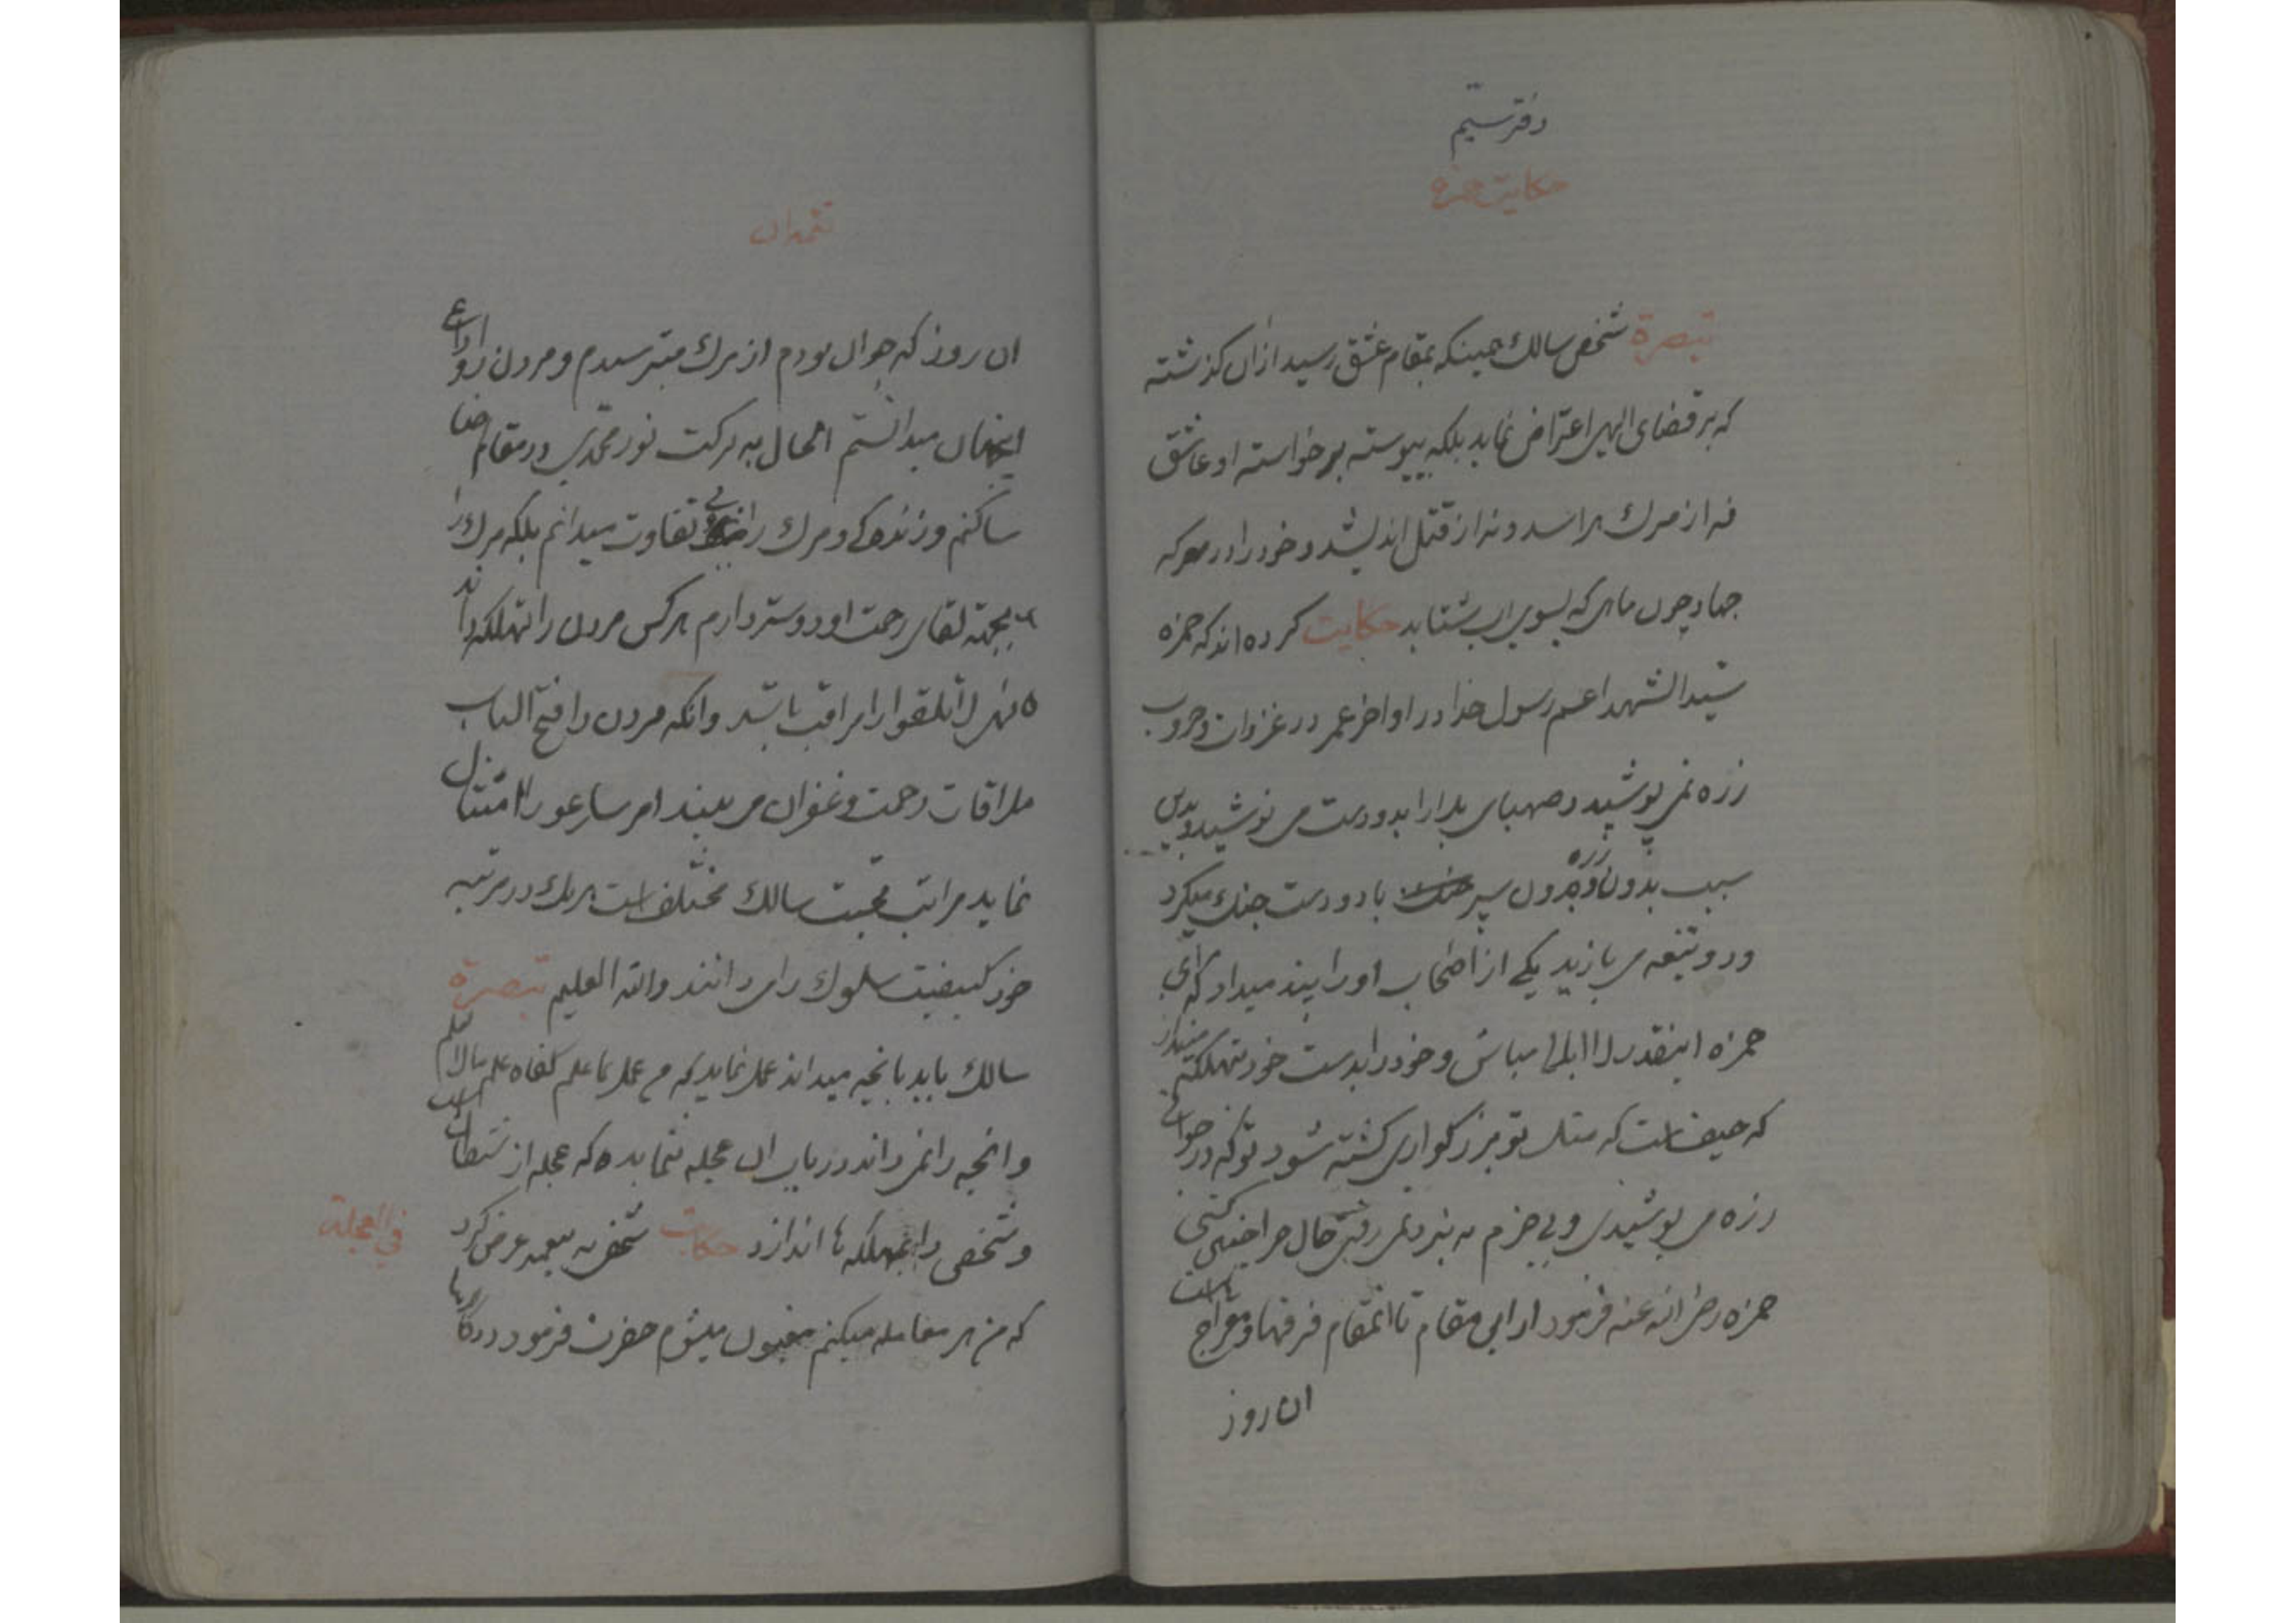 دفتر سیّم
حکایت حمزه
تبصرة شخص سالك همینکه بمقام عشق رسید ازان کذشته
که بر قضای الهی اعتراض نماید بلکه پیوسته بر خواسته او عاشق
نه از مرك هراسد و نه از قتل اندیشد و خود را در معرکه
جهاد چون ماهی که بسوی اب شتابد حکایت کرده اند که حمزه
سید الشهدا عم رسول خدا در اواخر عمر در غزوات و حروب
زره نمی پوشید و صهبای بلا را بدو دست می نوشید و بدین
سبب بدون زره و بدون سپر با دو دست جنك میکرد
و دو تیغه می بازید یکی از اصحاب او را پند میداد که ای
حمزه اینقدر لا ابالی مباش و خود را بدست خود بتهلکه مینداز
که حیف است که مثل تو بزرکواری کشته شود تو که در جوانی
زره می پوشیدی و بی حزم به نبرد نمی رفتی حال چرا چنین کنی
حمزه رضی الله عنه فرمود از این مقام تا انمقام فرقها و معراج هاست
ان روز
تتمه ان
ان روز که جوان بودم از مرك میترسیدم و مردن را وداع
اینجهان میدانستم الحال به برکت نور محمدی در مقام رضا
ساکنم و زندکی و مرك را بی تفاوت میدانم بلکه مرك را
بجهته لقای رحمت او دوستر دارم هر کس مردن را تهلکه داند
نهی لا تلقوا را مراقب باشد و انکه مردن را فتح الباب
ملاقات رحمت و غفران می بیند امر سارعو را امتثال
نماید مراتب محبت سالك مختلف است هریك در مرتبه
خود کیفیت سلوك را می دانند والله العلیم تبصرة
سالك باید بانچه میداند عمل نماید که من عمل بما علم کفاه علم ما لا یعلم
و انچه را نمی داند در بیان ان عجله ننماید که عجله از شیطان است
و شخص را بتهلکه ها اندازد حکایت شخصی به پیغمبر عرض کرد
فی العجلة
که من هر معامله میکنم مغبون میشوم حضرت فرمود در کارها